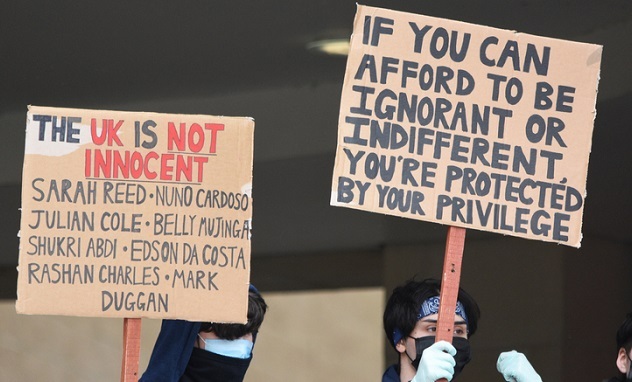 THE UK IS NOT
INNOCENT
SARAH REED • NUNO CARDOSO
JULIAN COLE • BELLY MUJINGA
SHUKRI ABDI • EDSON DA COSTA
RASHAN CHARLES • MARK
DUGGAN
IF YOU CAN
AFFORD TO BE
IGNORANT OR
INDIFFERENT,
YOU'RE PROTECTED
BY YOUR PRIVILEGE